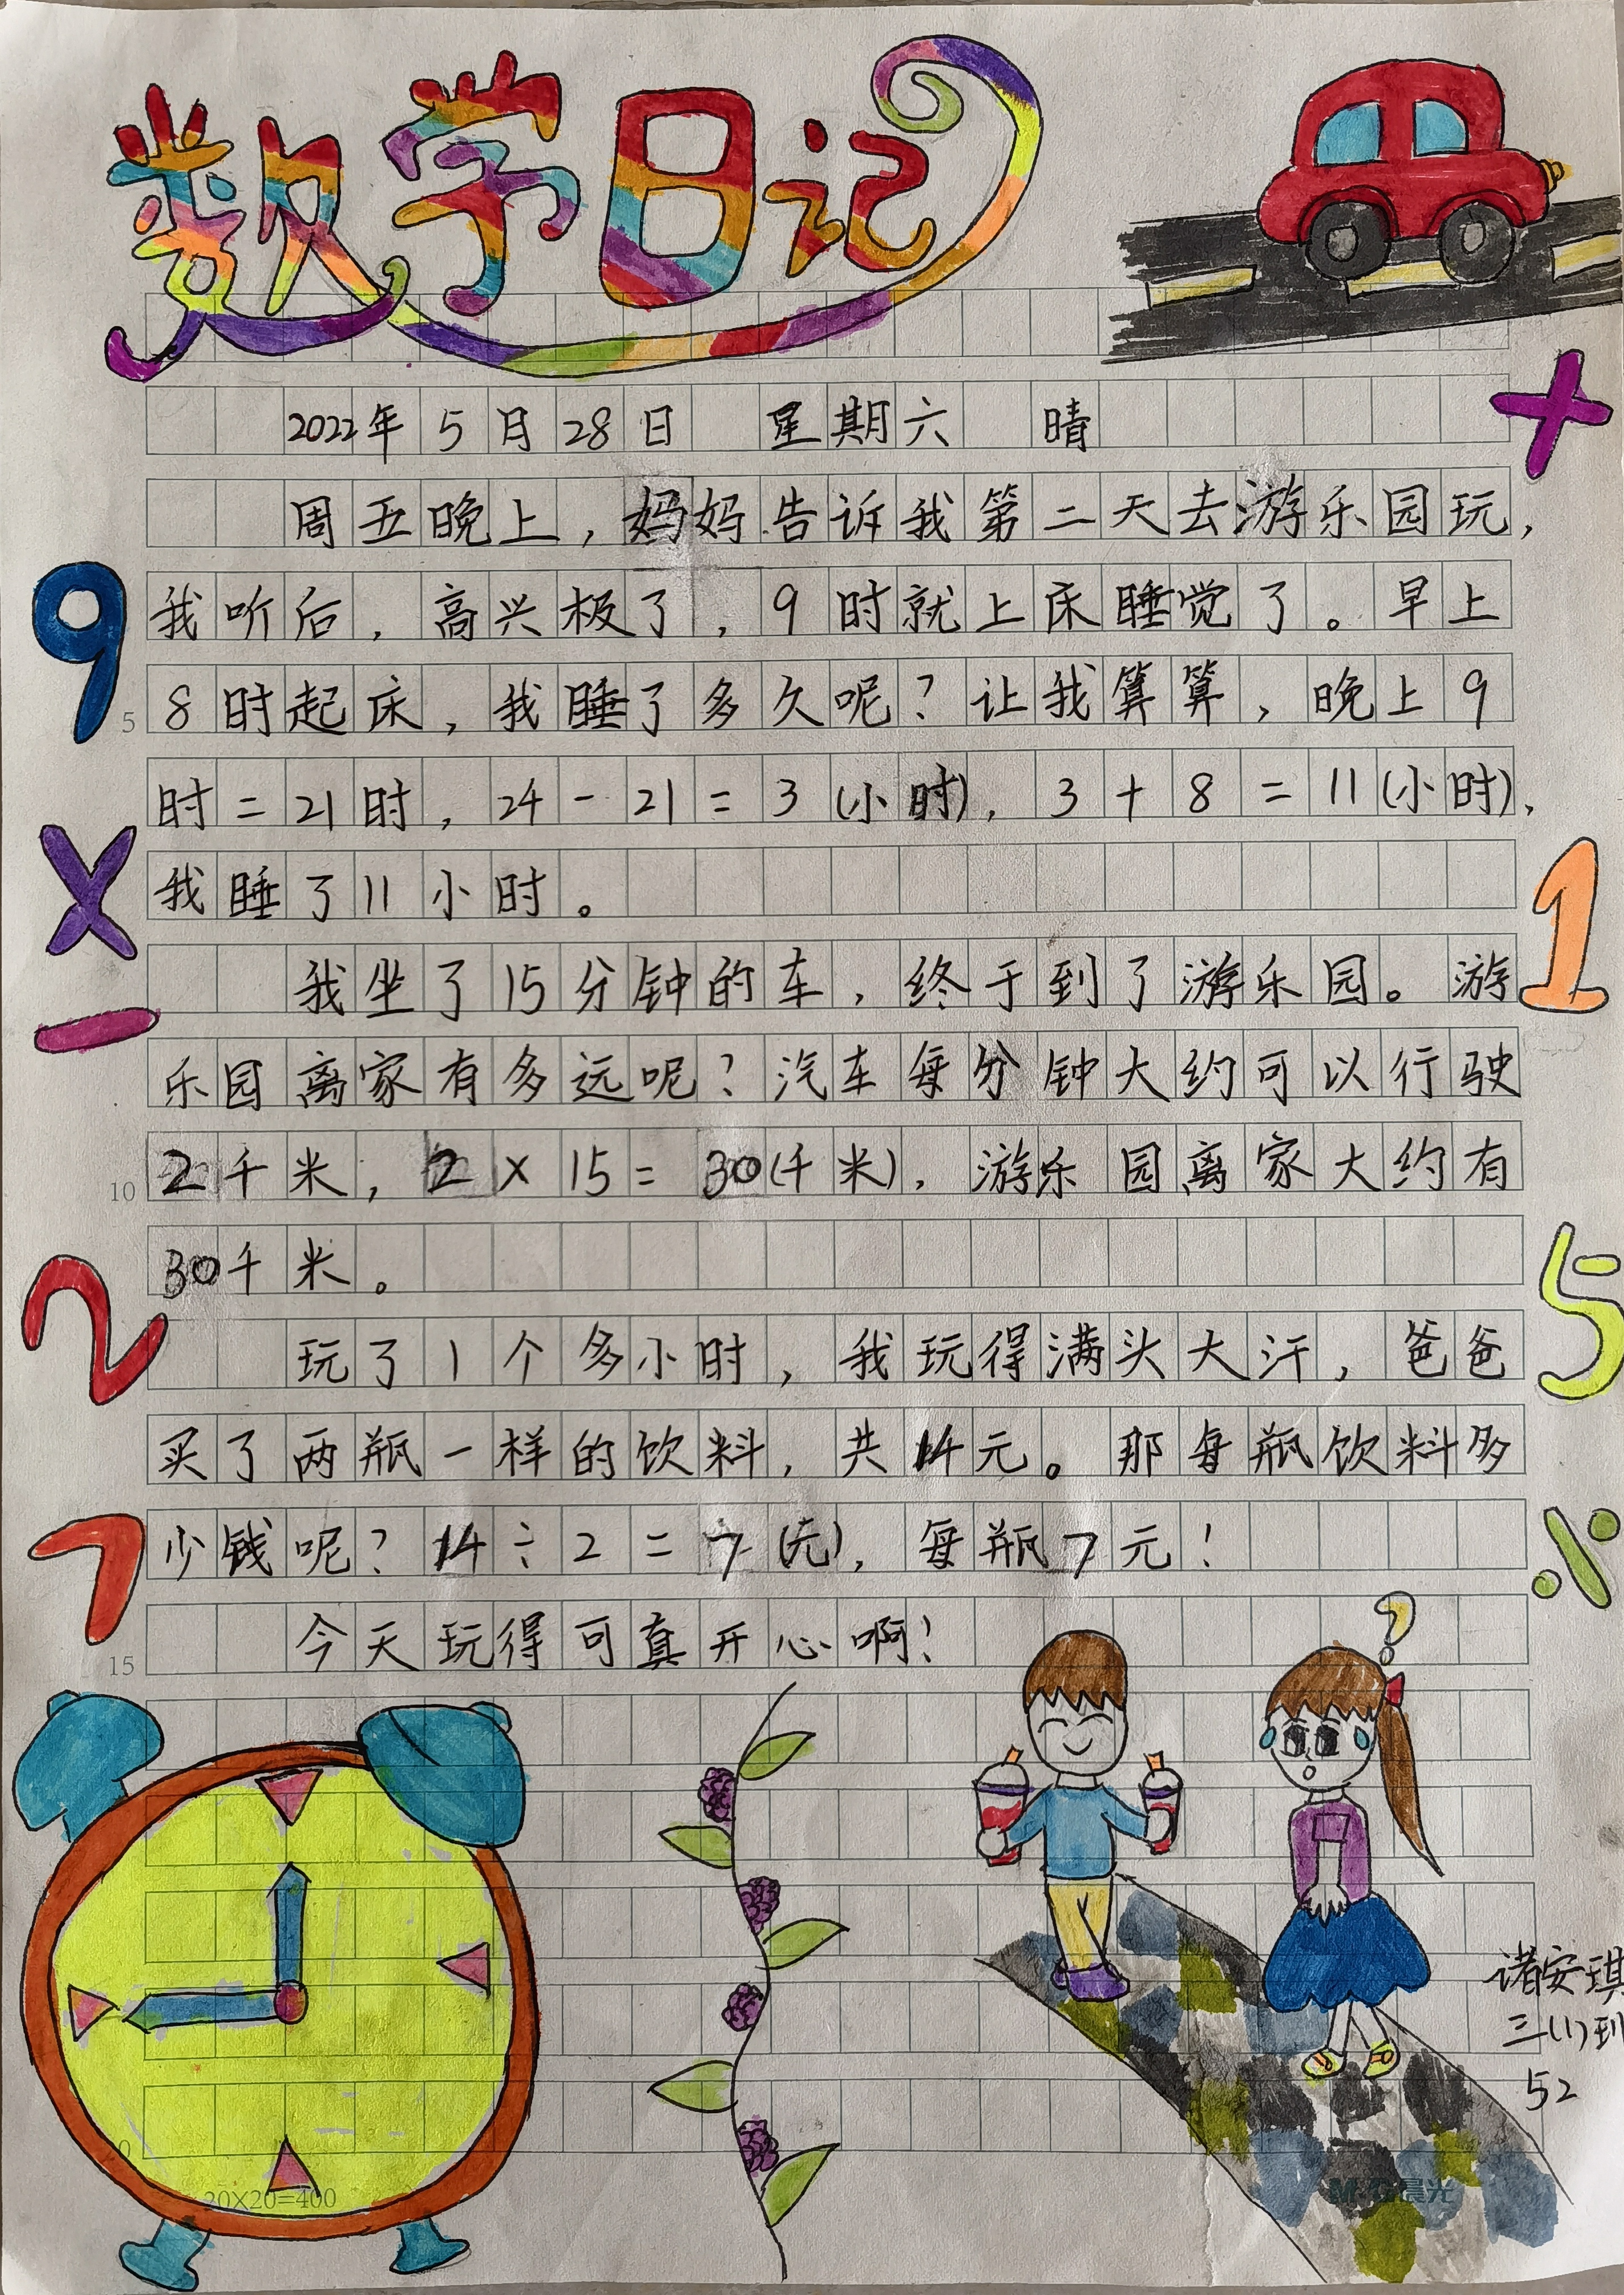 数学日记
+
2022年5月28日 星期六 晴
周五晚上，妈妈告诉我第二天去游乐园玩，
9
我听后，高兴极了，9时就上床睡觉了。早上
5 8时起床，我睡了多久呢？让我算算，晚上9
时=21时，24-21=3(小时)，3+8=11(小时)，
×
我睡了11小时。
1
我坐了15分钟的车，终于到了游乐园。游
-
乐园离家有多远呢？汽车每分钟大约可以行驶
10 2千米，2×15=30(千米)，游乐园离家大约有
30千米。
2
5
玩了1个多小时，我玩得满头大汗，爸爸
买了两瓶一样的饮料，共14元。那每瓶饮料多
7
少钱呢？14÷2=7(元)，每瓶7元！
÷
15 今天玩得可真开心啊！
?
诸安琪
三(1)班
52
20×20=400
M&G晨光